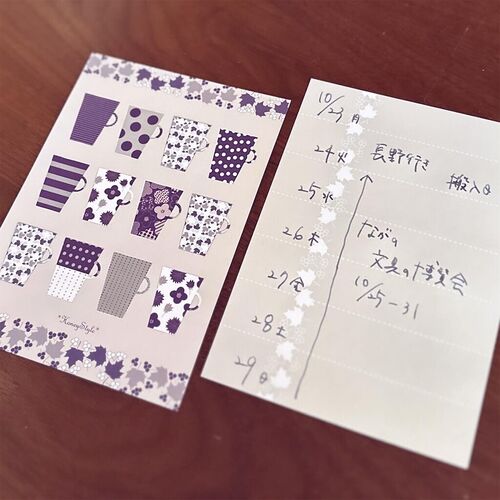 *HoneyStyle*
10/23 月
24 火 長野行き 搬入日
25 水
26 木 ながの
文具の博覧会
27 金 10/25-31
28 土
29 日